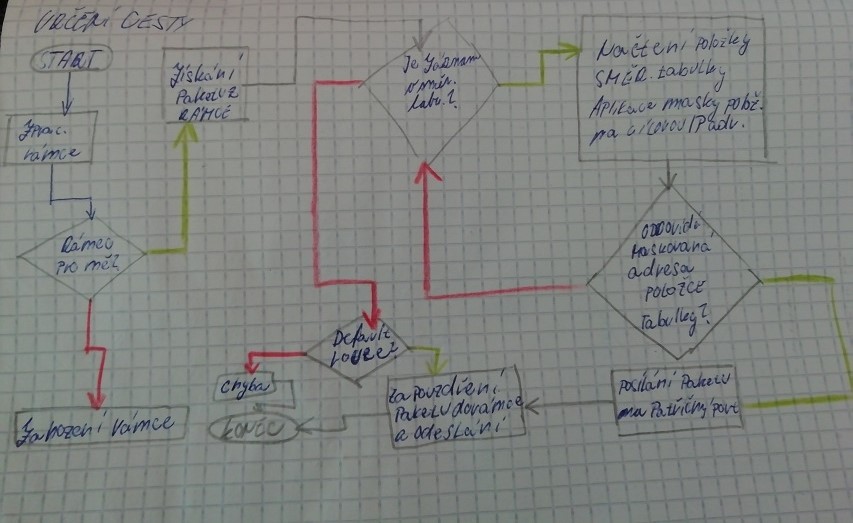 URČENÍ CESTY
START
Zprac.
rámce
Rámec
pro mě?
Zahození rámce
Získání
Paketu z
RÁMCE
Je záznam
v směr.
tabu.?
Načtení položky
SMĚR. tabulky
Aplikace masky polož.
na cílovou IP adr.
Odpovídá
Maskovaná
adresa
POLOŽCE
Tabulky?
Posílání Paketu
na Patřičný port
Zapouzdření
Paketu do rámce
a odeslání
Default
route?
chyba
KONEC